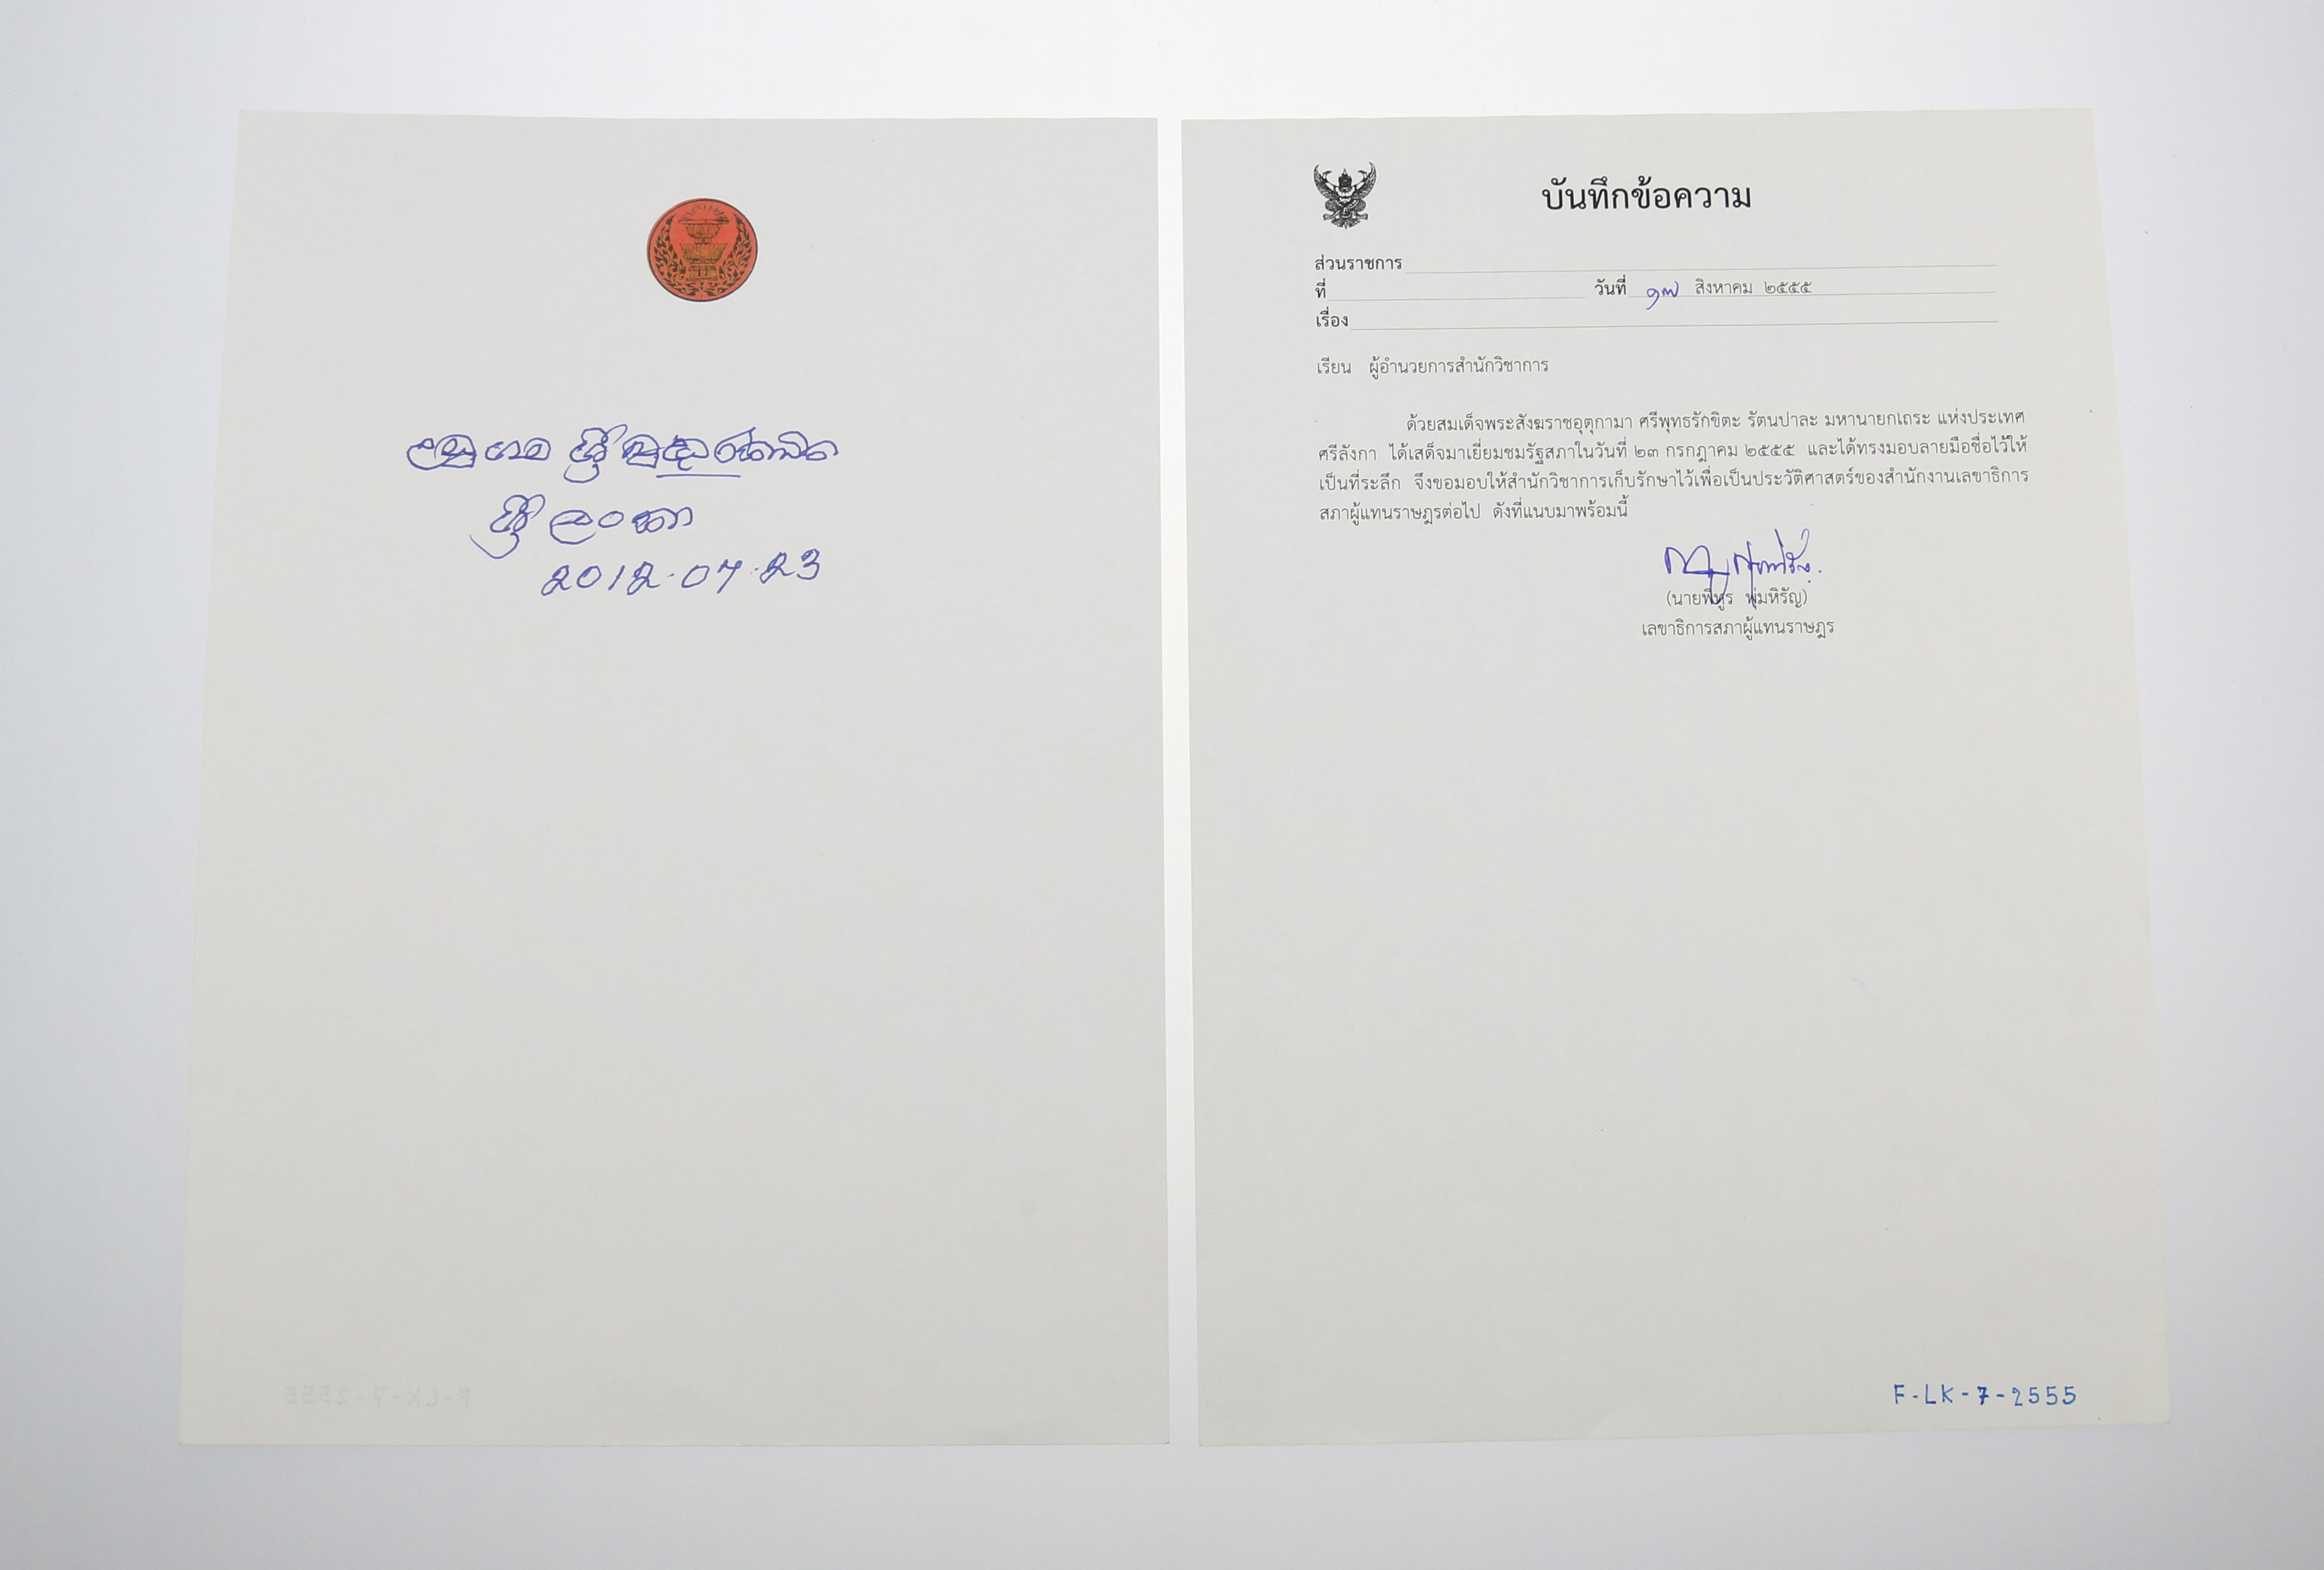 උඩුගම ශ්‍රී බුද්ධරක්ඛිත
ශ්‍රී ලංකා
2012.07.23
บันทึกข้อความ
ส่วนราชการ
ที่ วันที่ ๑๗ สิงหาคม ๒๕๕๕
เรื่อง
เรียน ผู้อำนวยการสำนักวิชาการ
ด้วยสมเด็จพระสังฆราชอุตุกามา ศรีพุทธรักขิตะ รัตนปาละ มหานายกเถระ แห่งประเทศ
ศรีลังกา ได้เสด็จมาเยี่ยมชมรัฐสภาในวันที่ ๒๓ กรกฎาคม ๒๕๕๕ และได้ทรงมอบลายมือชื่อไว้ให้
เป็นที่ระลึก จึงขอมอบให้สำนักวิชาการเก็บรักษาไว้เพื่อเป็นประวัติศาสตร์ของสำนักงานเลขาธิการ
สภาผู้แทนราษฎรต่อไป ดังที่แนบมาพร้อมนี้
(นายพิทูร พุ่มหิรัญ)
เลขาธิการสภาผู้แทนราษฎร
F-LK-7-2555